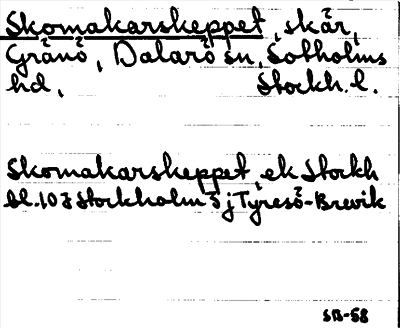 Skomakarskeppet, skär,
Gränö, Dalarö sn, Sotholms
hd, Stockh. l.
Skomakarskeppet, ek Stockh
bl. 10 I Stockholm 5 j Tyresö-Brevik
SB-58